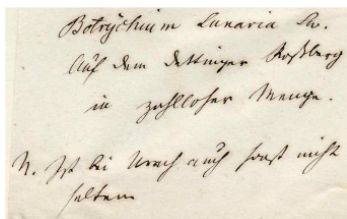 Botrychium Lunaria Sw.
Auf dem Dettinger Roßberg
in zahlloser Menge.
N. Ist bei Urach auch sonst nicht
selten